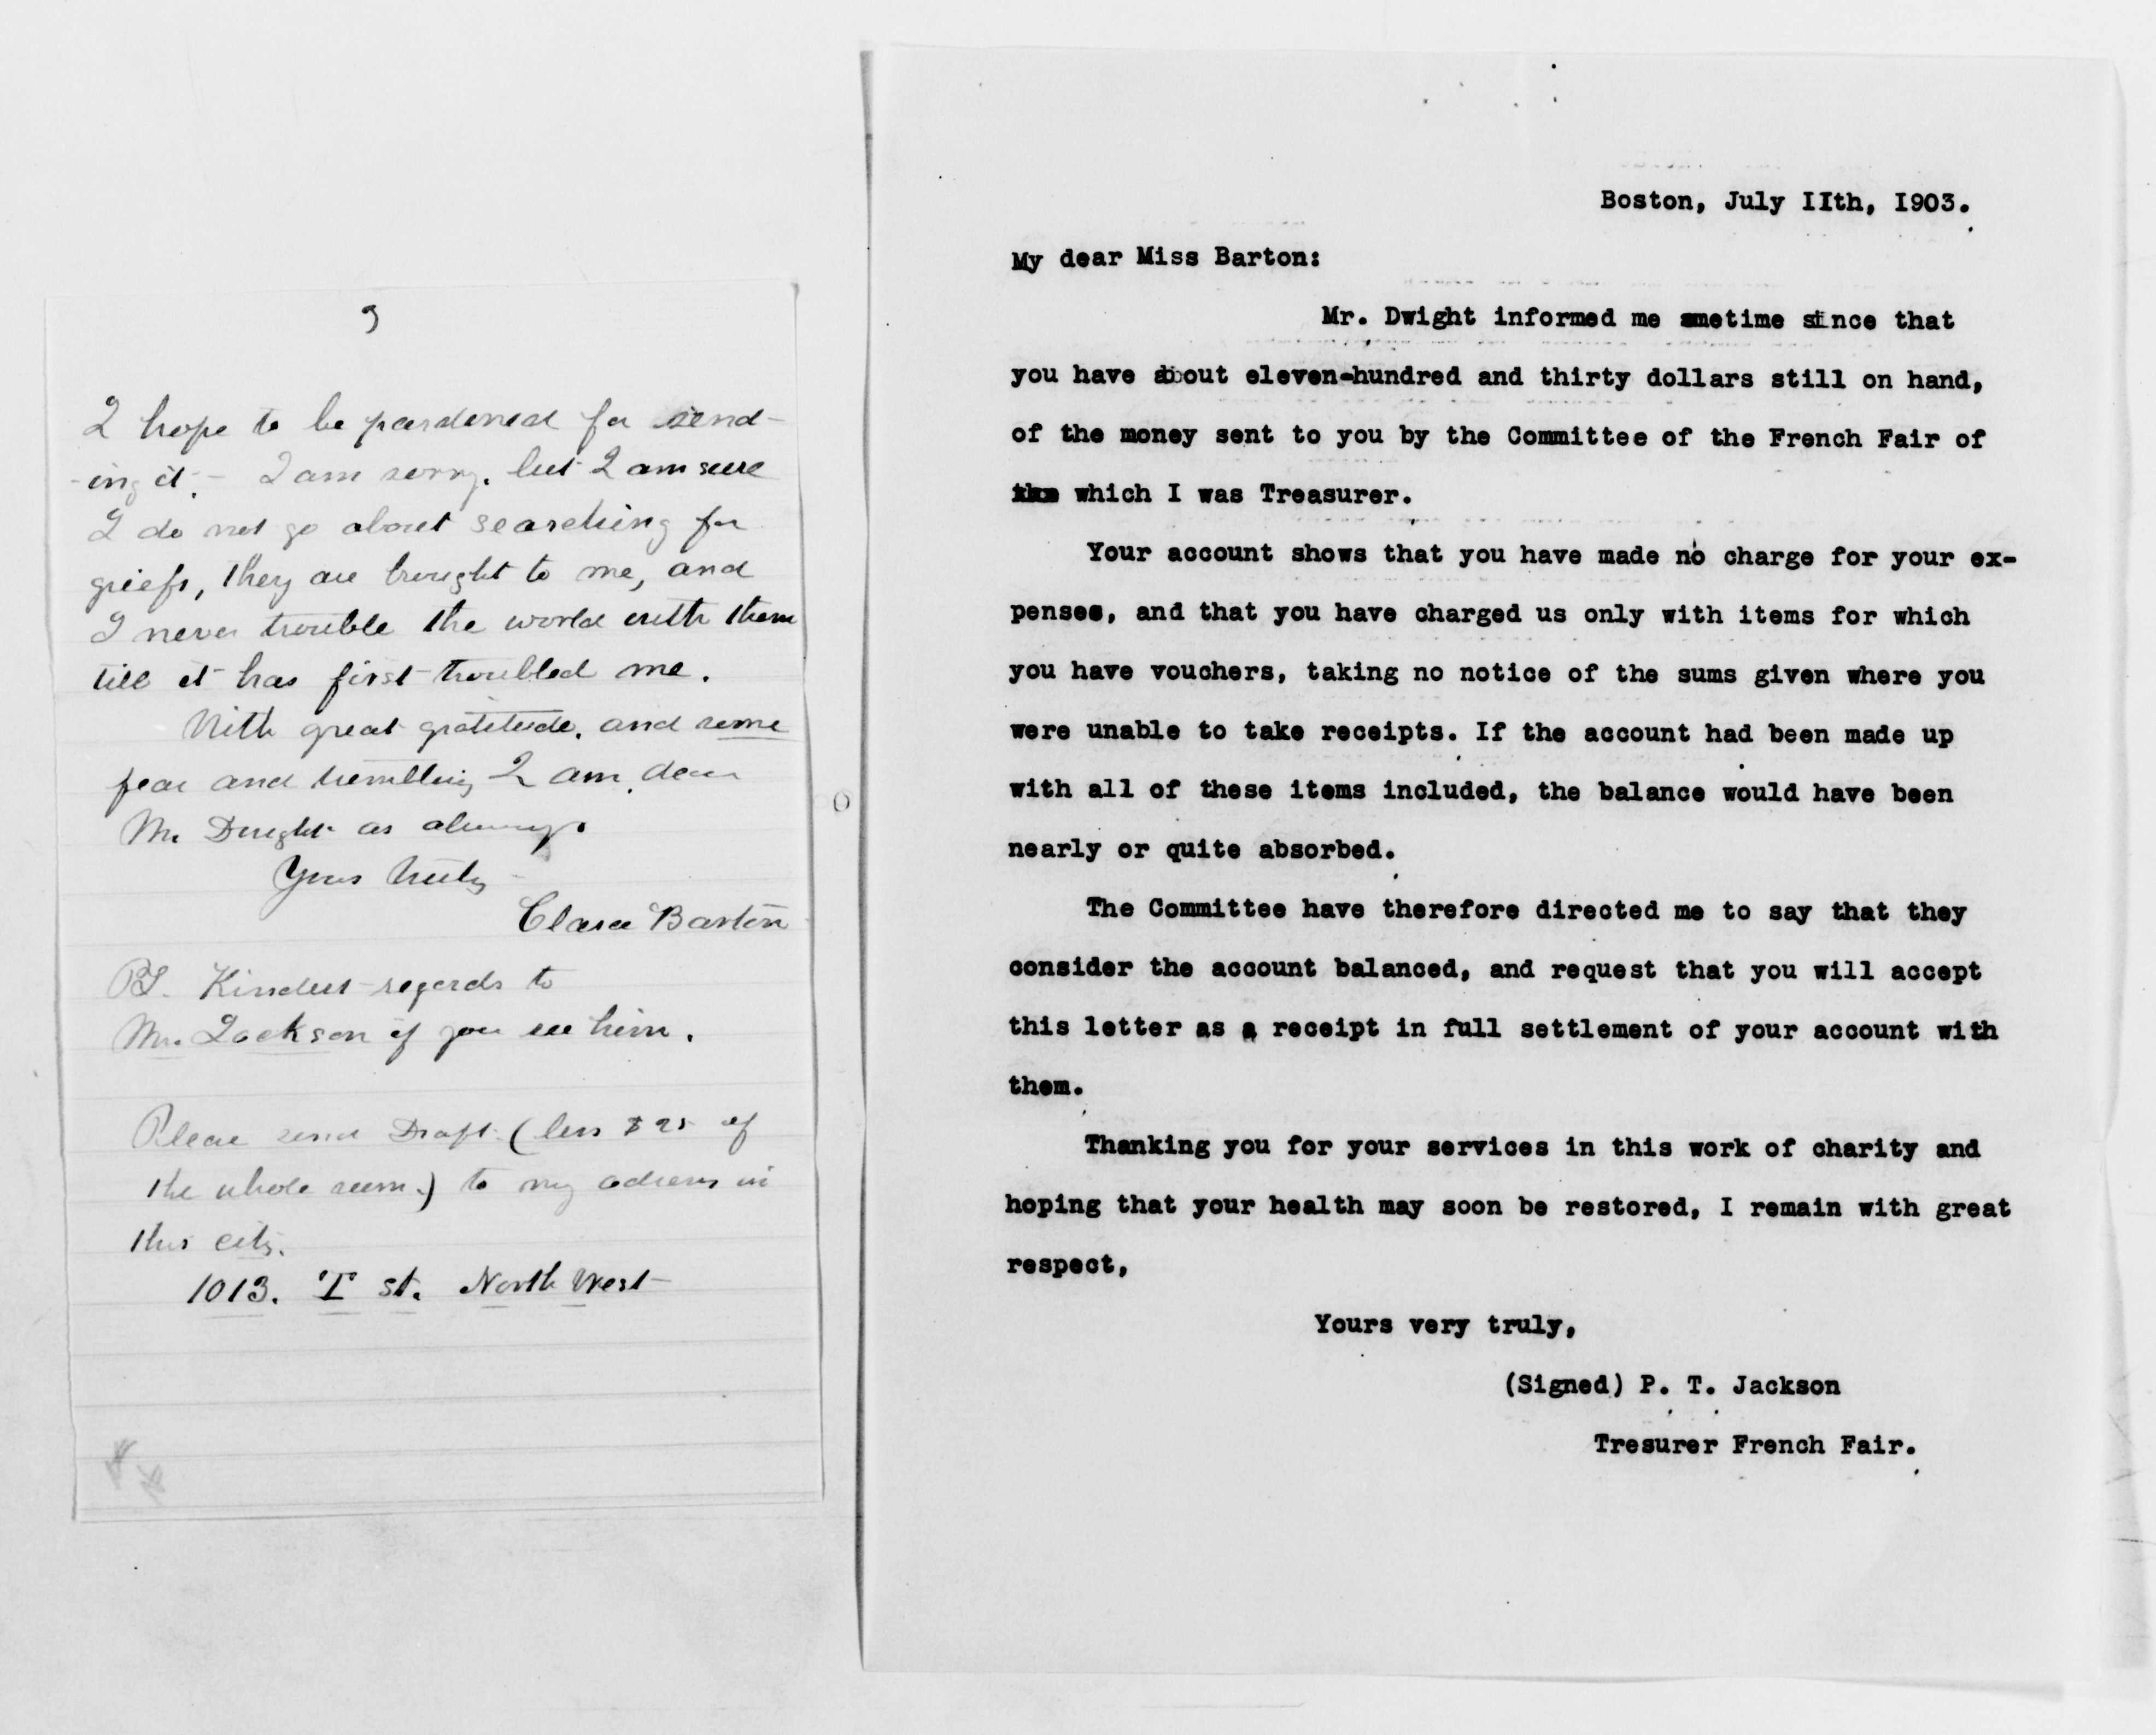 9
I hope to be pardoned for send-
-ing it. - I am sorry. but I am sure
I do not go about searching for
griefs, they are brought to me, and
I never trouble the world with them
till it has first troubled me.
With great gratitude. and some
fear and trembling I am, dear
Mr. Dwight as always.
Yours truly
Clara Barton
PS. Kindest regards to
Mr. Jackson if you see him.
Please send Draft (less $25 of
the whole sum.) to my address in
this city.
1013. T st. North West
Boston, July IIth, I903.
My dear Miss Barton:
Mr. Dwight informed me smetime since that
you have about eleven-hundred and thirty dollars still on hand,
of the money sent to you by the Committee of the French Fair of
which I was Treasurer.
Your account shows that you have made no charge for your ex-
penses, and that you have charged us only with items for which
you have vouchers, taking no notice of the sums given where you
were unable to take receipts. If the account had been made up
with all of these items included, the balance would have been
nearly or quite absorbed.
The Committee have therefore directed me to say that they
consider the account balanced, and request that you will accept
this letter as a receipt in full settlement of your account with
them.
Thanking you for your services in this work of charity and
hoping that your health may soon be restored, I remain with great
respect,
Yours very truly,
(Signed) P. T. Jackson
Tresurer French Fair.